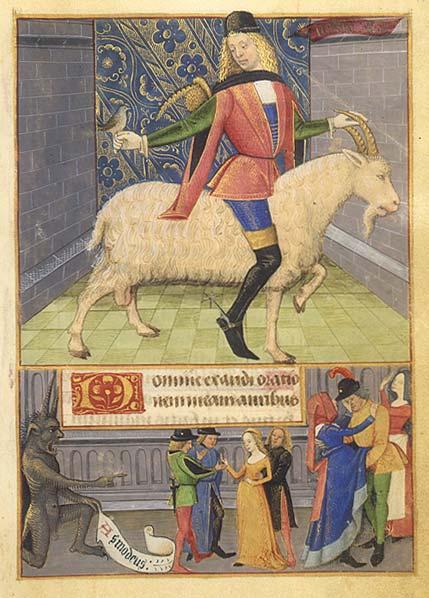 Domine exaudi oratio
nem meam auribus
Asmodeus.